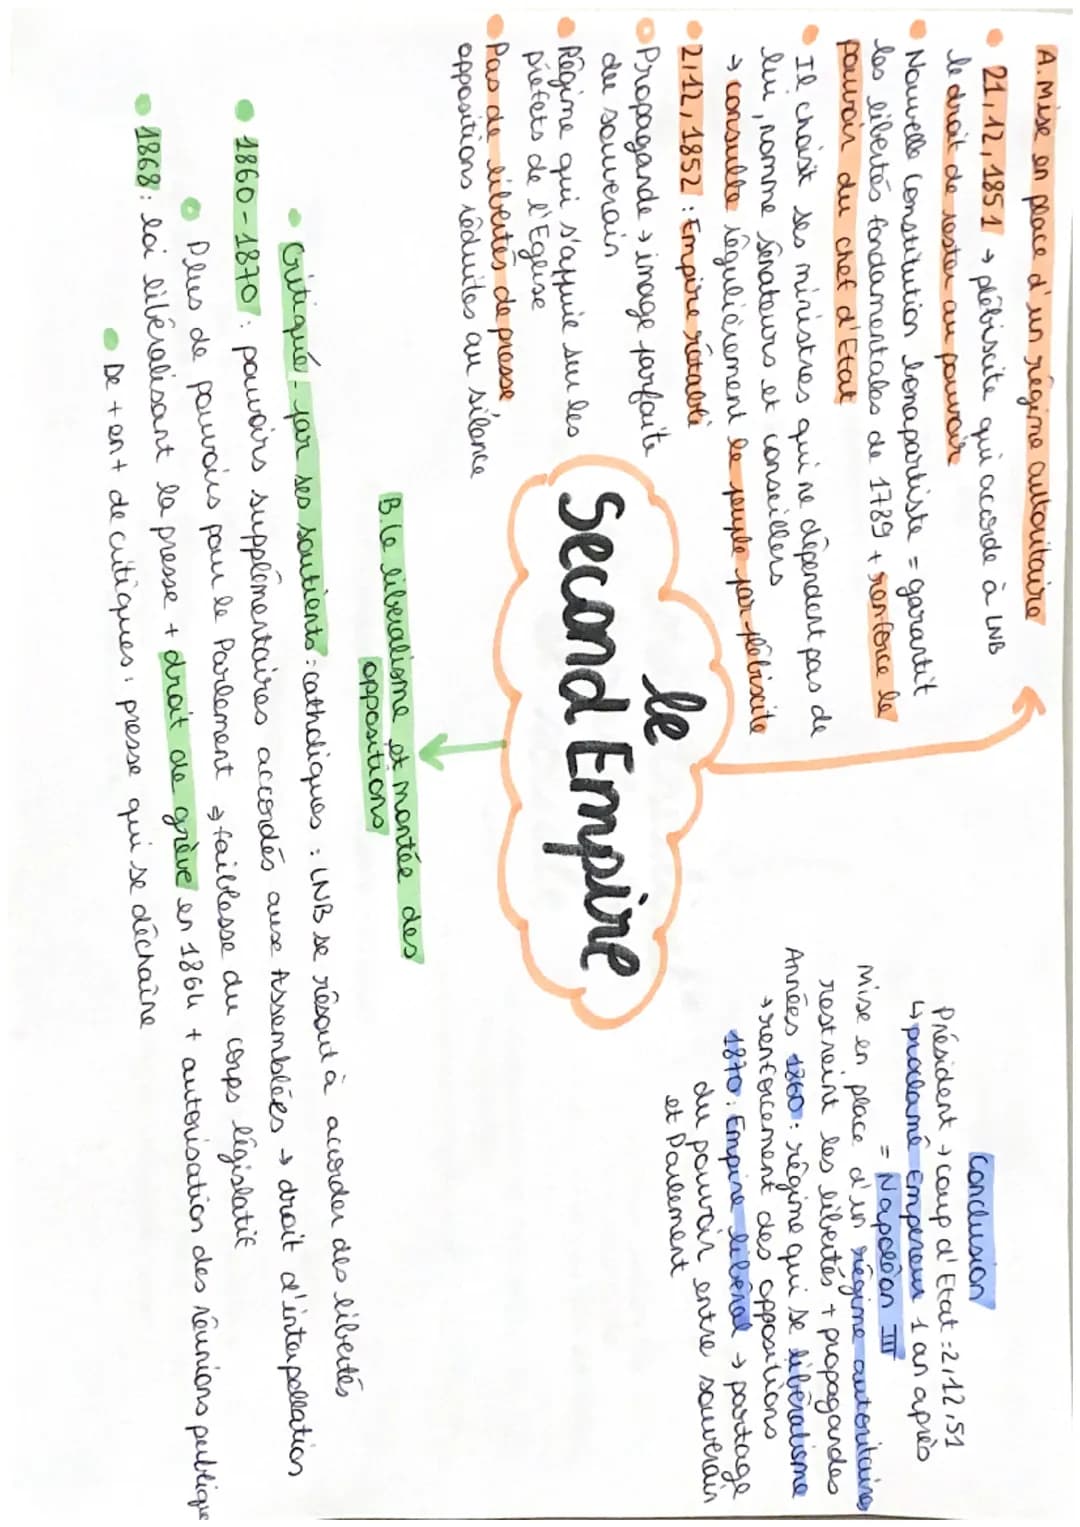 A. Mise en place d'un régime autoritaire
21,12,1851 → plébiscite qui accorde à LNB
le droit de rester au pouvoir
Nouvelle constitution bonapartiste = garantit
les libertés fondamentales de 1789 + renforce le
pouvoir du chef d'Etat
Il choisit ses ministres qui ne dépendent pas de
lui, nomme sénateurs et conseillers
→ consulte régulièrement le peuple par plébiscite
2,12,1852 : Empire rétabli
Propagande → image parfaite
du souverain
Régime qui s'appuie sur les
préfets de l'Eglise
Pas de libertés de presse
oppositions réduites au silence
le
Second Empire
Conclusion
Président → coup d'Etat : 2,12,51
↳ proclamé Empereur 1 an après
= Napoléon III
Mise en place d'un régime autoritaire,
restreint les libertés + propagandes
Années 1860 : régime qui se libéralisme
→ renforcement des oppositions
1870 : Empire libéral → partage
du pouvoir entre souverain
et Parlement
B. Le libéralisme et montée des
oppositions
Critiqué par ses soutients : catholiques : LNB se résout à accorder des libertés
1860-1870 : pouvoirs supplémentaires accordés aux Assemblées → droit d'interpellation
Plus de pouvoirs pour le Parlement → faiblesse du corps législatif
1868 : loi libéralisant la presse + droit de grève en 1864 + autorisation des réunions publique
De + en + de critiques : presse qui se déchaîne